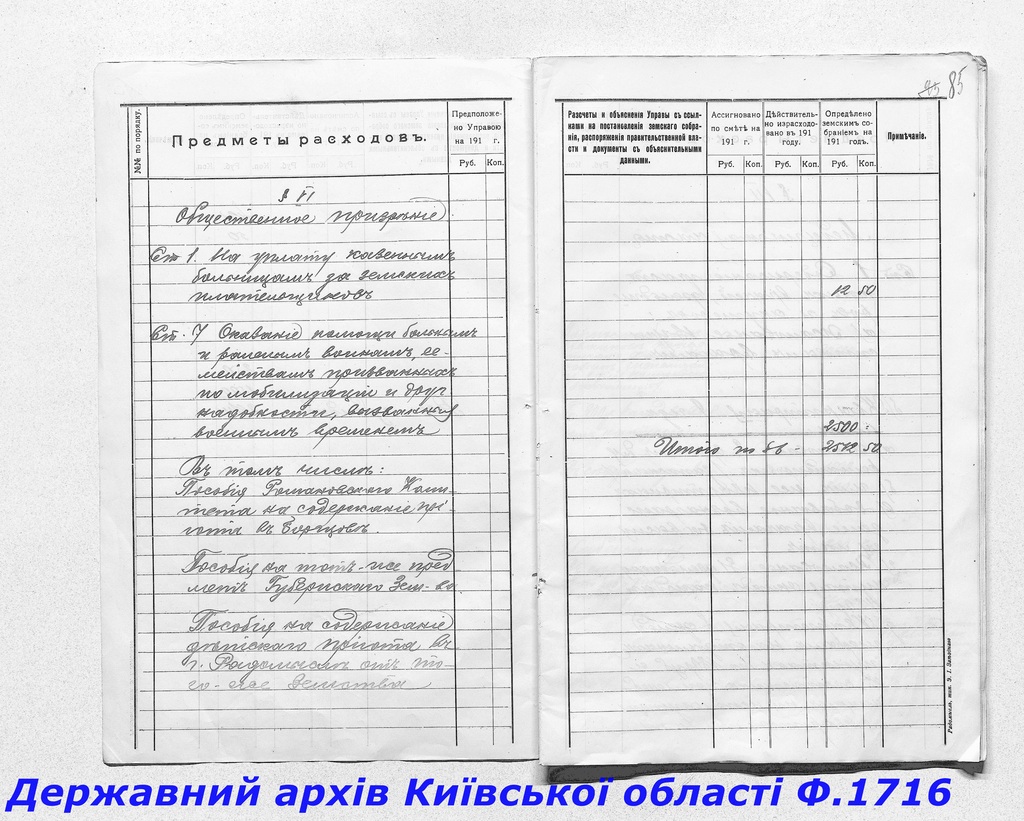 №№ по порядку.
Предметы расходовъ.
Предположе-
но Управою
на 191 г.
Руб. Коп.
§ VI
Общественное призрѣніе
Ст 1. На уплату казеннымъ
больницамъ за земскихъ
плательщиковъ
Ст. 7 Оказаніе помощи больнымъ
и раненымъ воинамъ, се-
мействамъ призванныхъ
по мобилизаціи и друг
надобности, вызванныя
военнымъ временемъ
Въ томъ числѣ:
Пособія Романовского Коми-
тета на содержаніе прі-
юта въ
Пособія на тотъ-же пред
метъ Губернского Зем-ва.
Пособія на содержаніе
дѣтского пріюта въ
г. Радомыслѣ отъ то-
го-же Земства
85
Разсчеты и объясненія Управы съ ссыл-
ками на постановленія земскаго собра-
нія, распоряженія правительственной вла-
сти и документы съ объяснительными
данными.
Ассигновано
по смѣтѣ на
191 г.
Руб. Коп.
Дѣйствитель-
но израсходо-
вано въ 191
году.
Руб. Коп.
Опредѣлено
земскимъ со-
браніемъ на
191 годъ.
Руб. Коп.
Примѣчаніе.
12 50
2500 -
Итого по § 6 - 2512 50
Радомысль, тип.
Державний архів Київської області Ф.1716